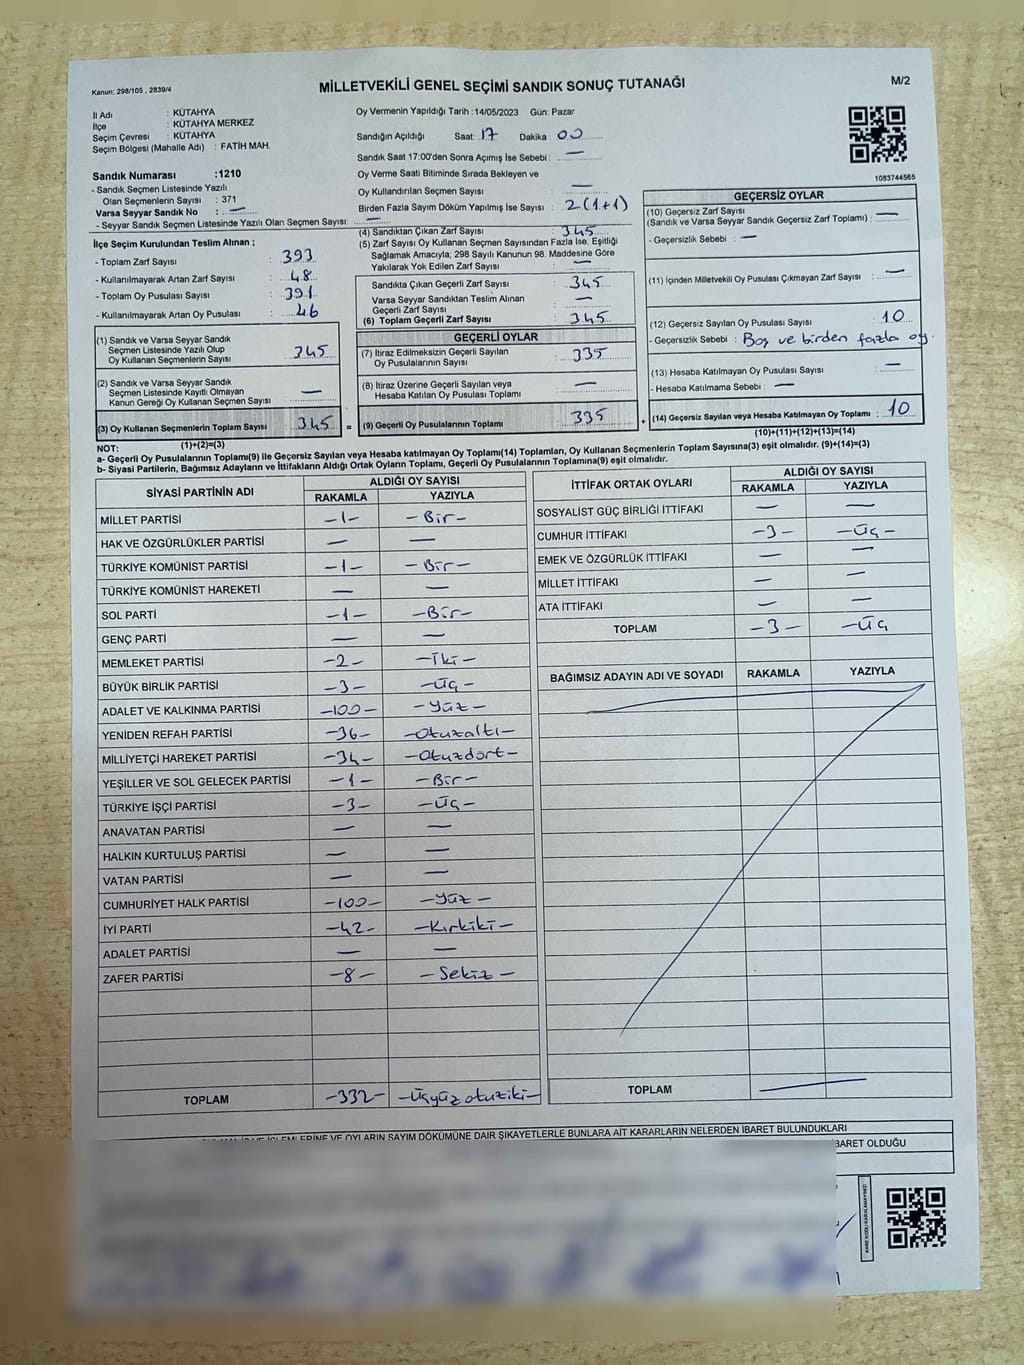 Kanun; 298/105 , 2839/4
MİLLETVEKİLİ GENEL SEÇİMİ SANDIK SONUÇ TUTANAĞI
M/2
İl Adı : KÜTAHYA
İlçe : KÜTAHYA MERKEZ
Seçim Çevresi : KÜTAHYA
Seçim Bölgesi (Mahalle Adı) : FATİH MAH.
Oy Vermenin Yapıldığı Tarih :14/05/2023 Gün: Pazar
Sandığın Açıldığı Saat: 17 Dakika: 00
Sandık Saat 17:00'den Sonra Açımış İse Sebebi : —
Oy Verme Saati Bitiminde Sırada Bekleyen ve
Oy Kullandırılan Seçmen Sayısı : —
Birden Fazla Sayım Döküm Yapılmış İse Sayısı : 2(1+1)
1083744565
Sandık Numarası :1210
- Sandık Seçmen Listesinde Yazılı
Olan Seçmenlerin Sayısı : 371
Varsa Seyyar Sandık No : —
- Seyyar Sandık Seçmen Listesinde Yazılı Olan Seçmen Sayısı: —
İlçe Seçim Kurulundan Teslim Alınan ;
- Toplam Zarf Sayısı : 393
- Kullanılmayarak Artan Zarf Sayısı : 48
- Toplam Oy Pusulası Sayısı : 391
- Kullanılmayarak Artan Oy Pusulası : 46
(1) Sandık ve Varsa Seyyar Sandık
Seçmen Listesinde Yazılı Olup
Oy Kullanan Seçmenlerin Sayısı : 345
(2) Sandık ve Varsa Seyyar Sandık
Seçmen Listesinde Kayıtlı Olmayan
Kanun Gereği Oy Kullanan Seçmen Sayısı : —
(3) Oy Kullanan Seçmenlerin Toplam Sayısı : 345 =
(4) Sandıktan Çıkan Zarf Sayısı : 345
(5) Zarf Sayısı Oy Kullanan Seçmen Sayısından Fazla İse, Eşitliği
Sağlamak Amacıyla; 298 Sayılı Kanunun 98. Maddesine Göre
Yakılarak Yok Edilen Zarf Sayısı : —
Sandıkta Çıkan Geçerli Zarf Sayısı : 345
Varsa Seyyar Sandıktan Teslim Alınan
Geçerli Zarf Sayısı : —
(6) Toplam Geçerli Zarf Sayısı : 345
GEÇERLİ OYLAR
(7) İtiraz Edilmeksizin Geçerli Sayılan
Oy Pusulalarının Toplamı : 335
(8) İtiraz Üzerine Geçerli Sayılan veya
Hesaba Katılan Oy Pusulası Toplamı : —
(9) Geçerli Oy Pusulalarının Toplamı : 335 +
GEÇERSİZ OYLAR
(10) Geçersiz Zarf Sayısı
(Sandık ve Varsa Seyyar Sandık Geçersiz Zarf Toplamı) : —
- Geçersizlik Sebebi : —
(11) İçinden Milletvekili Oy Pusulası Çıkmayan Zarf Sayısı : —
(12) Geçersiz Sayılan Oy Pusulası Sayısı : 10
- Geçersizlik Sebebi : Boş ve birden fazla oy
(13) Hesaba Katılmayan Oy Pusulası Sayısı : —
- Hesaba Katılmama Sebebi : —
(14) Geçersiz Sayılan veya Hesaba Katılmayan Oy Toplamı : 10
(10)+(11)+(12)+(13)=(14)
NOT: (1)+(2)=(3)
a- Geçerli Oy Pusulalarının Toplamı(9) ile Geçersiz Sayılan veya Hesaba katılmayan Oy Toplamı(14) Toplamları, Oy Kullanan Seçmenlerin Toplam Sayısına(3) eşit olmalıdır. (9)+(14)=(3)
b- Siyasi Partilerin, Bağımsız Adayların ve İttifakların Aldığı Ortak Oyların Toplamı, Geçerli Oy Pusulalarının Toplamına(9) eşit olmalıdır.
SİYASİ PARTİNİN ADI ALDIĞI OY SAYISI
RAKAMLA YAZIYLA
MİLLET PARTİSİ -1- -Bir-
HAK VE ÖZGÜRLÜKLER PARTİSİ — —
TÜRKİYE KOMÜNİST PARTİSİ -1- -Bir-
TÜRKİYE KOMÜNİST HAREKETİ — —
SOL PARTİ -1- -Bir-
GENÇ PARTİ — —
MEMLEKET PARTİSİ -2- -İki-
BÜYÜK BİRLİK PARTİSİ -3- -Üç-
ADALET VE KALKINMA PARTİSİ -100- -Yüz-
YENİDEN REFAH PARTİSİ -36- -Otuzaltı-
MİLLİYETÇİ HAREKET PARTİSİ -34- -Otuzdört-
YEŞİLLER VE SOL GELECEK PARTİSİ -1- -Bir-
TÜRKİYE İŞÇİ PARTİSİ -3- -Üç-
ANAVATAN PARTİSİ — —
HALKIN KURTULUŞ PARTİSİ — —
VATAN PARTİSİ — —
CUMHURİYET HALK PARTİSİ -100- -Yüz-
İYİ PARTİ -42- -Kırkiki-
ADALET PARTİSİ — —
ZAFER PARTİSİ -8- -Sekiz-
TOPLAM -332- -Üçyüzotuziki-
İTTİFAK ORTAK OYLARI ALDIĞI OY SAYISI
RAKAMLA YAZIYLA
SOSYALİST GÜÇ BİRLİĞİ İTTİFAKI — —
CUMHUR İTTİFAKI -3- -Üç-
EMEK VE ÖZGÜRLÜK İTTİFAKI — —
MİLLET İTTİFAKI — —
ATA İTTİFAKI — —
TOPLAM -3- -Üç
BAĞIMSIZ ADAYIN ADI VE SOYADI RAKAMLA YAZIYLA
TOPLAM —
İŞLEMLERİNE VE OYLARIN SAYIM DÖKÜMÜNE DAİR ŞİKAYETLERLE BUNLARA AİT KARARLARIN NELERDEN İBARET BULUNDUKLARI
İBARET OLDUĞU